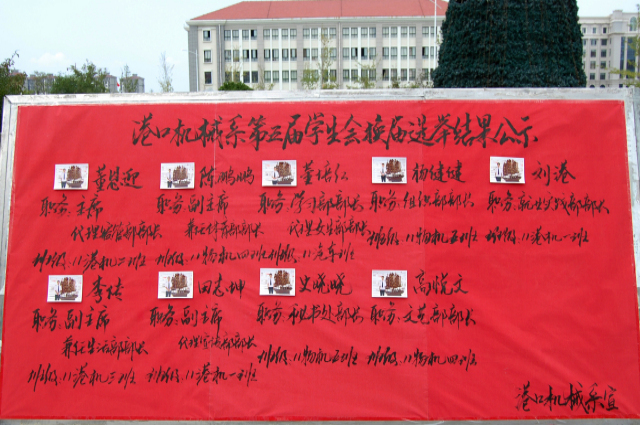 港口机械系第五届学生会换届选举结果公示
董慧迎
职务:主席
代理监管部部长
班级:11港机二班
陈鹏鹏
职务:副主席
兼任体育部部长
班级:11物机四班
董培弘
职务:学习部部长
代理女生部部长
班级:11汽车班
杨健健
职务:组织部部长
班级:11物机五班
刘港
职务:就业实践部部长
班级:11港机一班
李倩
职务:副主席
兼任生活部部长
班级:11港机三班
田志坤
职务:副主席
代理宣传部部长
班级:11港机一班
史晓晓
职务:秘书处部长
班级:11物机五班
高悦文
职务:文艺部部长
班级:11物机四班
港口机械系宣